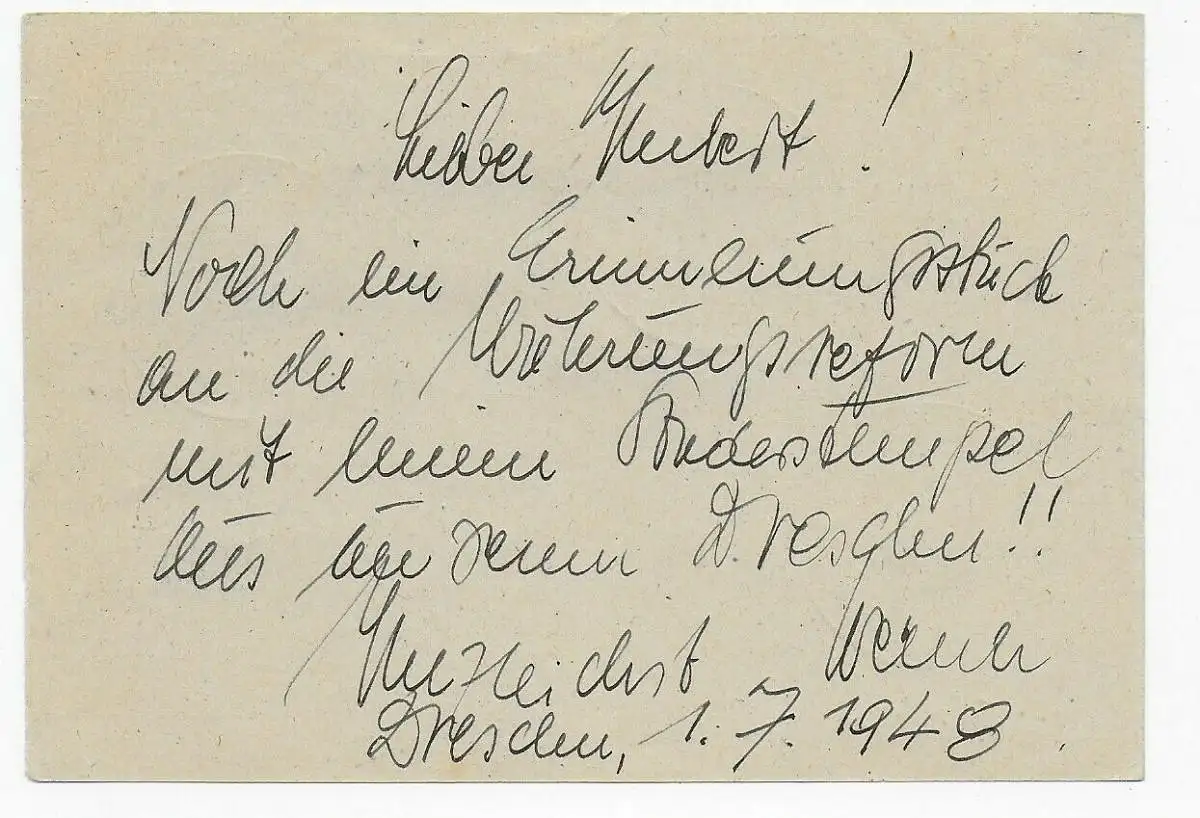 Lieber Herbert!
Noch ein Erinnerungsstück
an die Währungsreform
mit einem Sonderstempel
aus unserem Dresden!!
Herzlichst Werner
Dresden, 1.7.1948.